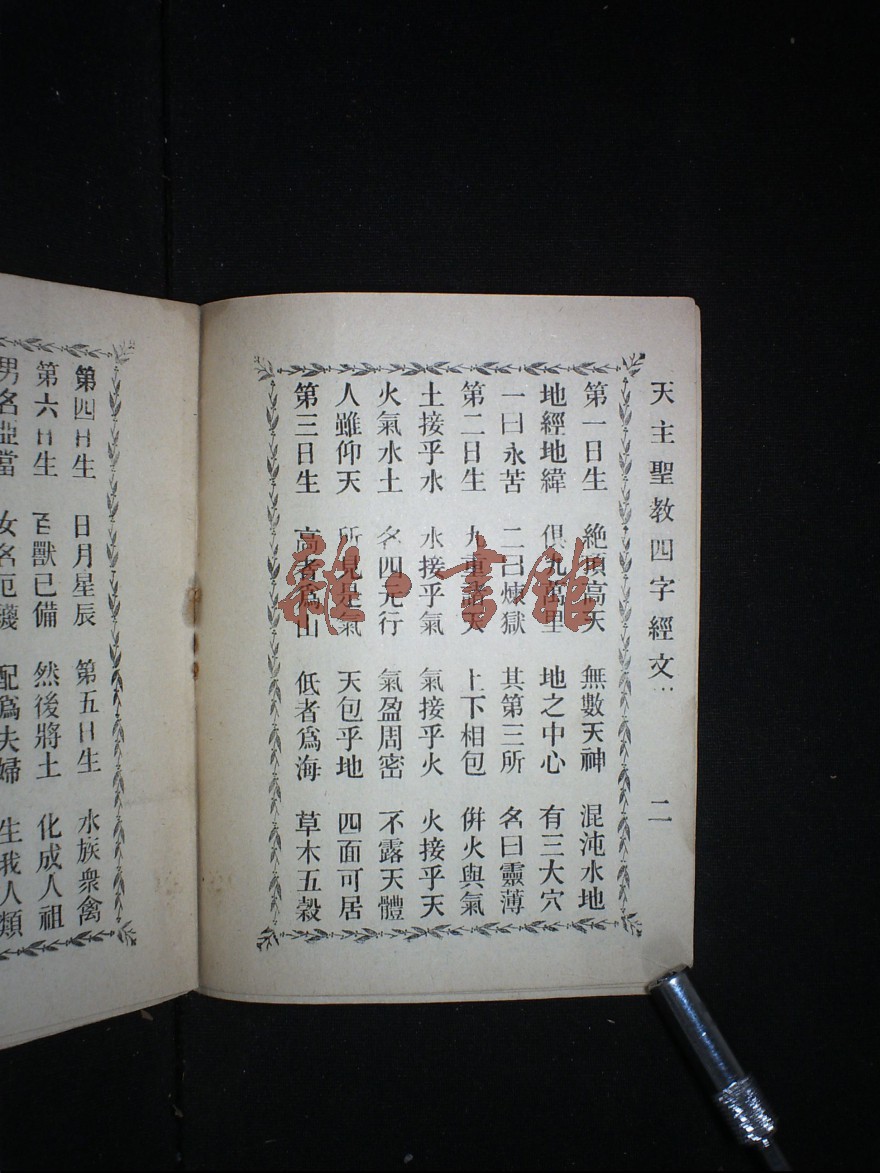 天主聖教四字經文 二
第一日生 絶頂高天 無數天神 混沌水地
地經地緯 俱九萬里 地之中心 有三大穴
一曰永苦 二曰煉獄 其第三所 名曰靈薄
第二日生 九重諸天 上下相包 倂火與氣
土接乎水 水接乎氣 氣接乎火 火接乎天
火氣水土 名四元行 氣盈周密 不露天體
人雖仰天 所見是氣 天包乎地 四面可居
第三日生 高者爲山 低者爲海 草木五穀
第四日生 日月星辰 第五日生 水族衆禽
第六日生 百獸已備 然後將土 化成人祖
男名亞當 女名厄襪 配爲夫婦 生我人類
雜·書館